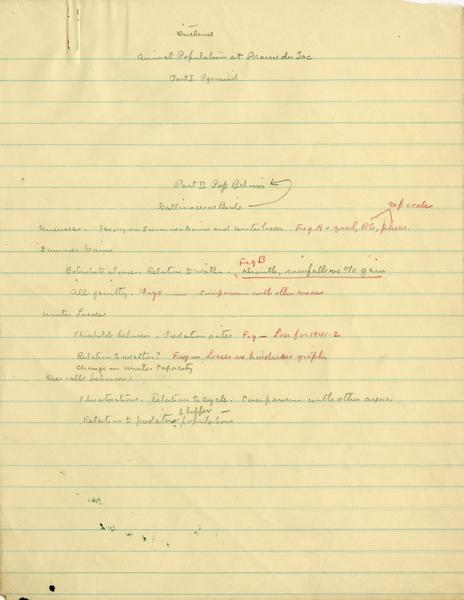 Outline
Animal Populations at Prairie du Sac
Part I Pyramid
Part II Pop Behavior
Gallinaceous Birds
sep scale
Censuses. Theory on Summer Gains and winter losses Fig A - quail, RG, pheas.
Summer Gains
Bobwhite alone. Relation to weather. Fig B Drouth, rainfall vs % gain
All jointly. Figs — comparison with other areas
Winter Losses
Threshold behavior. Predation rates Fig — Loss for 1941-2
Relation to weather? Fig — Losses vs hardness graph
Change in winter capacity
Over-all behavior
Fluctuations. Relation to cycle. Comparison with other areas.
Relation to predator & buffer populations